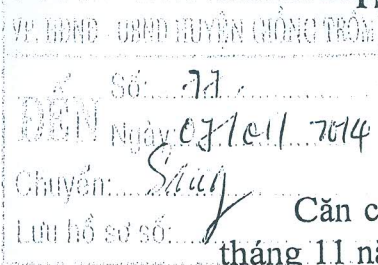 VP. HĐND - UBND HUYỆN GIỒNG TRÔM
Số: 77
ĐẾN
Ngày 07/01/ 2014
Chuyển: Sáng
Căn c
Lưu hồ sơ số:
tháng 11 nă